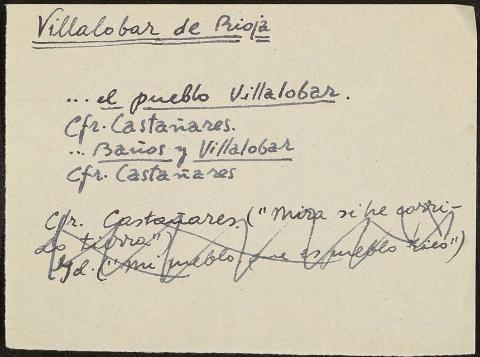 Villalobar de Rioja
... el pueblo Villalobar.
Cfr. Castañares.
... Baños y Villalobar
Cfr. Castañares
Cfr. Castañares ("Mira si he corri-
do tierra"
Id. ("Mi pueblo, que es pueblo rico")